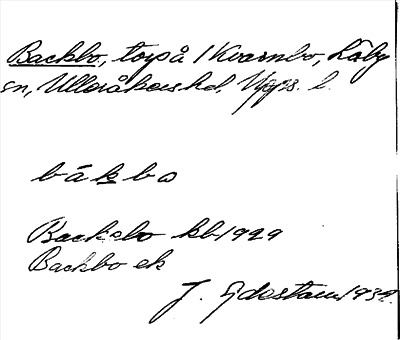 Backbo, torp å 1 Kvarnbo, Läby
sn, Ulleråkers hd, Upps. l.
bákbo
Backebo kb 1929
Backbo ek
J. Ejdestam 1932.